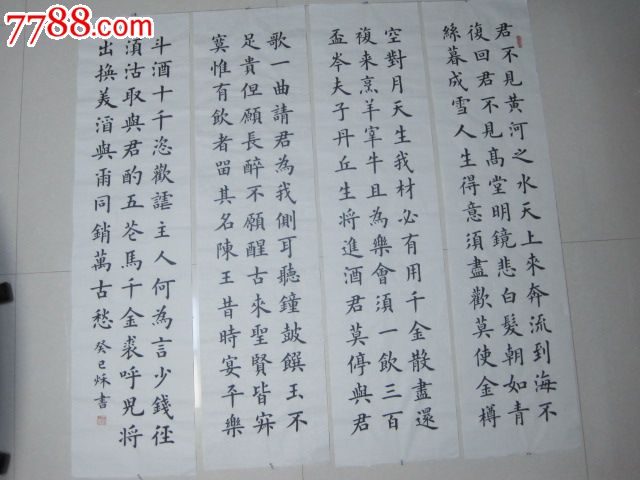 7788.com
君不見黃河之水天上來奔流到海不
復回君不見髙堂明鏡悲白髮朝如青
絲暮成雪人生得意須盡歡莫使金樽
空對月天生我材必有用千金散盡還
復来烹羊宰牛且為樂會須一飲三百
盃岑夫子丹丘生将進酒君莫停與君
歌一曲請君為我側耳聽鐘皷饌玉不
足貴但願長醉不願醒古來聖賢皆寂
寞惟有飲者留其名陳王昔時宴平樂
斗酒十千恣歡謔主人何為言少錢徑
須沽取與君酌五花馬千金裘呼兒将
出換美酒與爾同銷萬古愁癸巳秋書